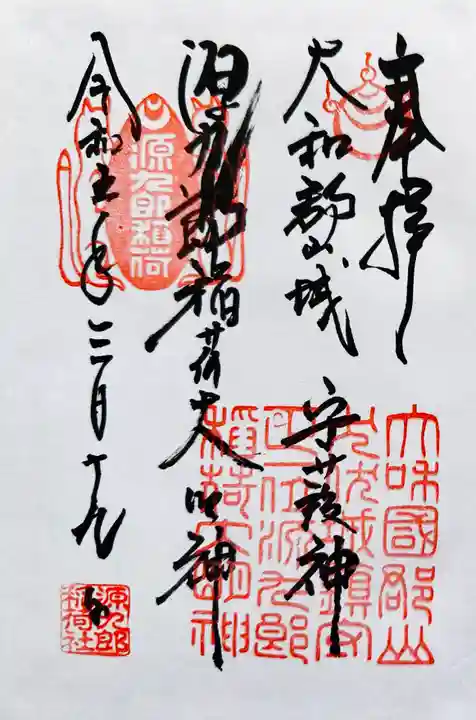 奉拝
大和郡山城 守護神
源九郎稲荷大明神
令和五年三月十九日
源九郎稲荷
大和國郡山
九郎
稲荷大明神
源九郎
稲荷社